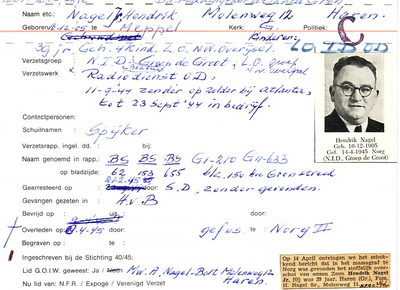 Naam etc.: Nagel Jr, Hendrik Molenweg 12 Haren.
Geboren 16-12-05 te Meppel Kerk: G. Politiek: C
Gehuwd met Kinderen:
39 jr. Geh. 4 kind. Z.O. N.W. Overijsel. LO ID OD
Verzetsgroep : N.I.D. Groep de Groot, L.O. groep
Verzetswerk : Radiodienst O.D,
11-9-44 zender op zolder bij atlanta,
tot 23 Sept '44 in bedrijf.
Contactpersonen:
Schuilnamen : Spijker
Verzetsrapp. ingel. dd. bij:
Naam genoemd in rapp.: BS BS BS GI-210 GII-633
op bladzijde: 62 153 655
Gearresteerd op 21-2-45 door: S.D, zender gevonden.
Gevangen gezeten in : H.v.B
Bevrijd op :
Overleden op : 4-45 door: gefus. te Norg II
Begraven op : te :
Ingeschreven bij de Stichting 40/45:
Lid G.O.I.W. geweest: Ja / Neen Mw. A. Nagel-Bult Molenweg 12
Nu lid v. N.F.R. / Expogé / Verenigd Verzet Haren.
Hendrik Nagel
Geb. 16-12-1905
Gef. 14-4-1945 Norg
(N.I.D., Groep de Groot)
Op 14 April ontvingen we het schok-
kend bericht dat in het massagraf te
Norg was gevonden het stoffelijk over-
schot van onzen Zoon Hendrik Nagel
Jr., Hij was 39 jaar. Haren (Gr.), Fam.
H. Nagel Sr., Molenweg 11.